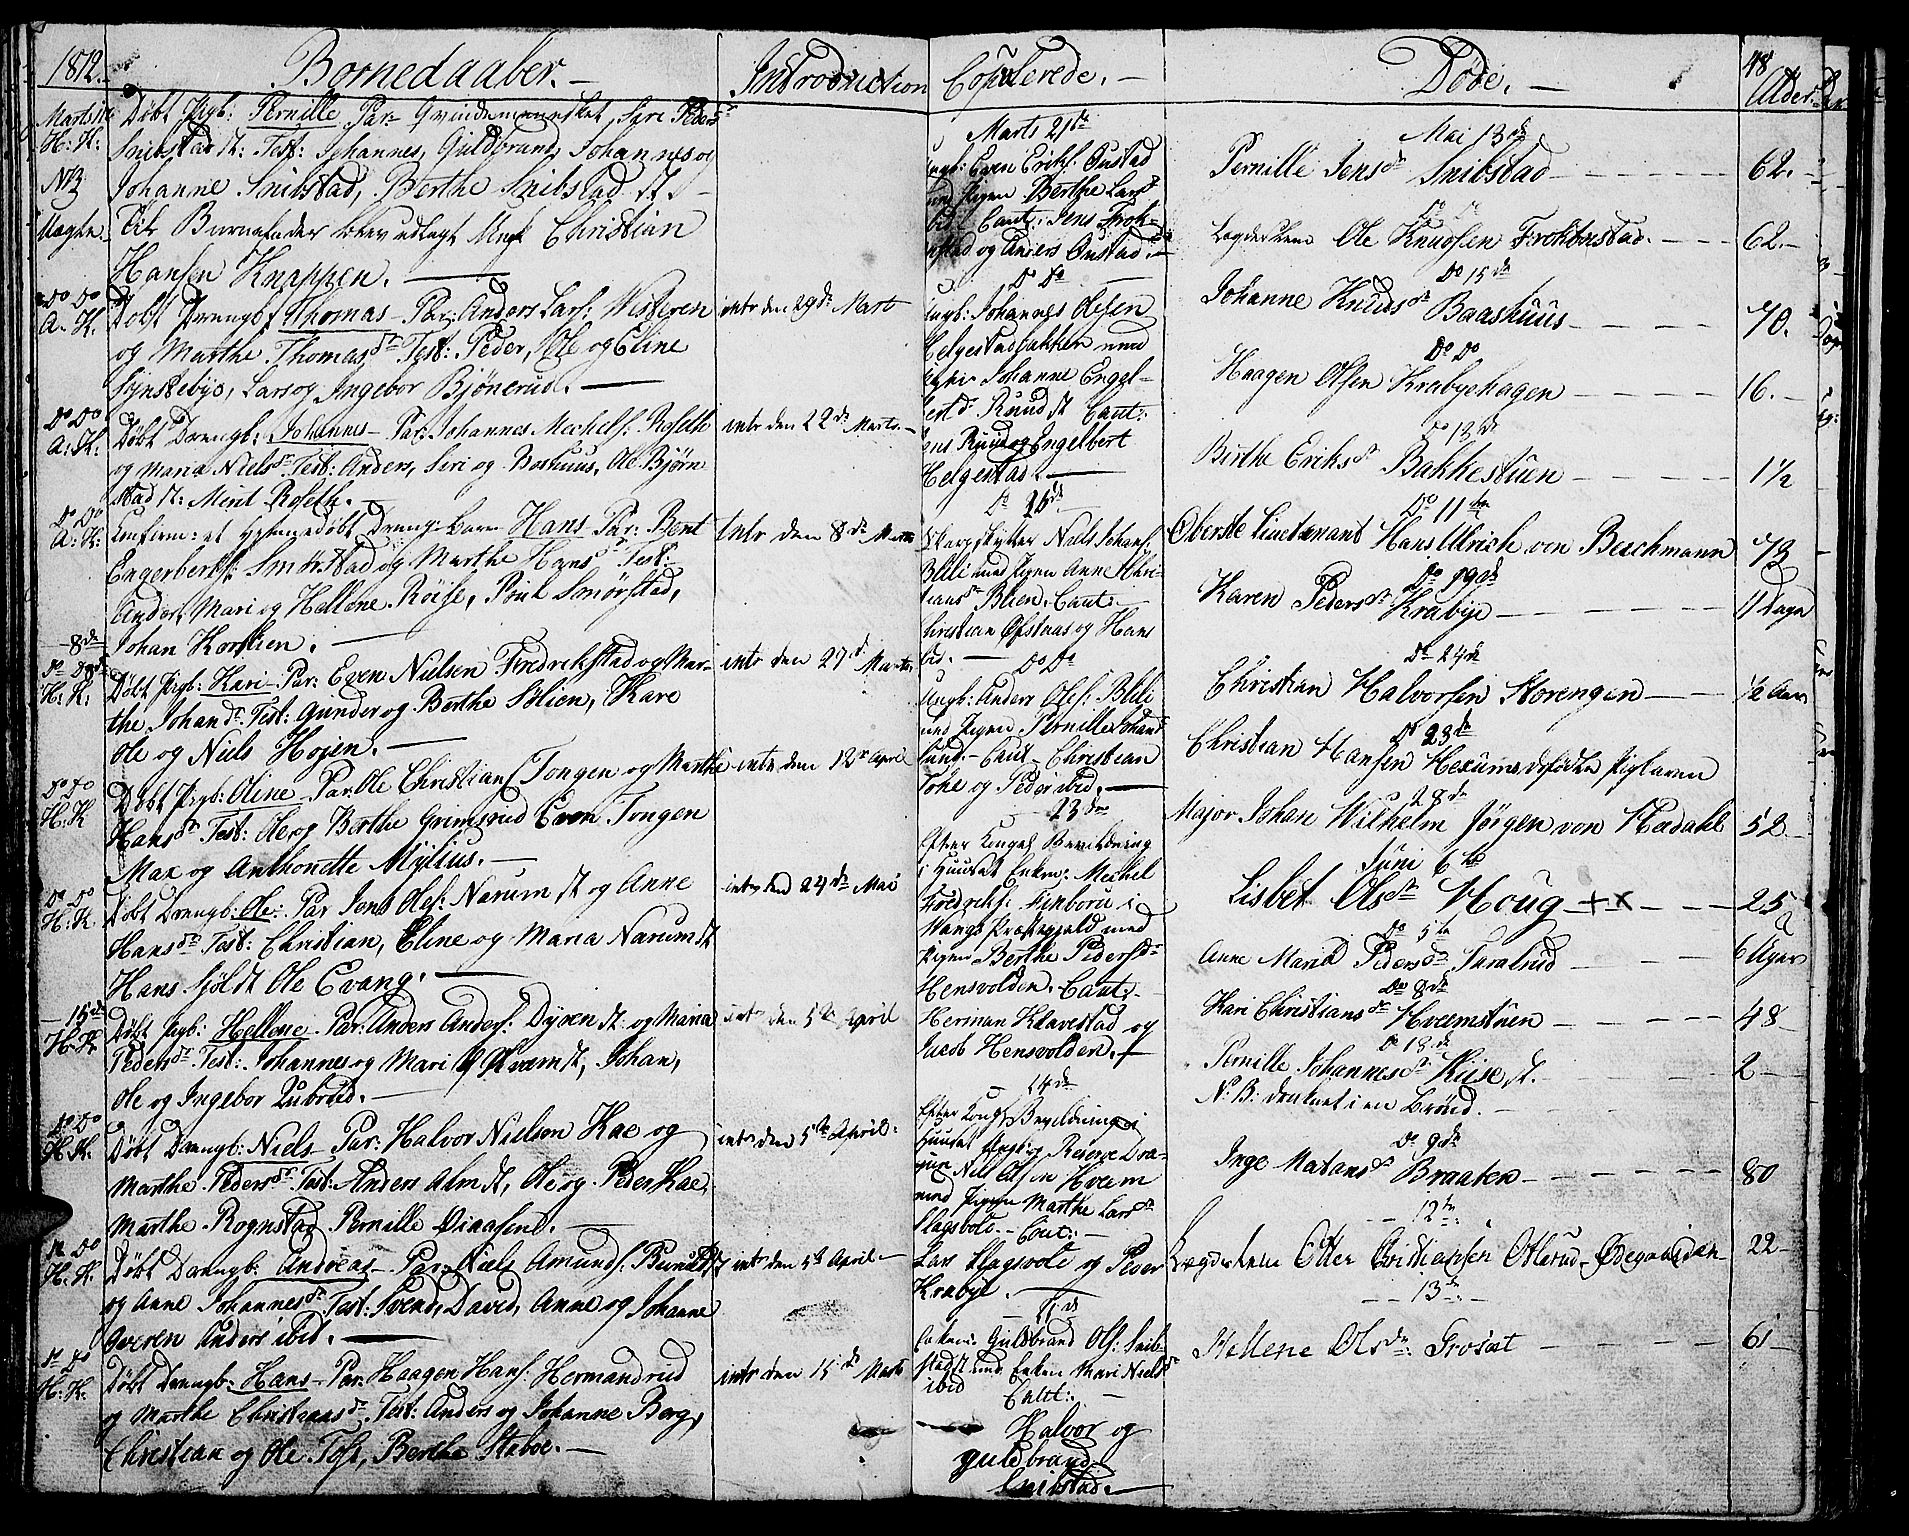 1812.
Børnedaaber. —
Introduction
Copulerede. —
Døde. —
48
Alder.
Marts
H: K:
NB
Døbt Pigb: Pernille Par: Qvindemennesket, Siri Peders
Snibstad st: Test: Johannes, Guldbrand, Johannes og
Johanne Snibstad, Berthe Snibstad st.
Til Barnefader blev udlagt Christian
Hansen Knappen. —
Do Do
A. K.
Døbt Drengb: Thomas Par: Anders Lars: Westeren
og Marthe Thomasdr Test: Peder, Ole og Eline
Synstebye, Lars og Ingebor Bjønerud. —
intr den 29de Marts
Do Do
A: K:
Døbt Drengb: Johannes Par: Johannes Mechels: Roseth
og Maria Nielsdr Test: Anders, Siri og Boshuus, Ole Bjørn
stad st: Roseth. —
intr den 22de Marts. —
Do Do
A: K:
Confirm: et hjemmedøbt Dreng-barn Hans Par: Bent
Engerbertss: Smørstad og Marthe Hansdr Test:
Ander, Mari og Hellene Røise, Poul Smørstad,
Johan Korslien. —
intr den 8de Marts
— 8de
H: K:
Døbt Pigb: Kari Par: Even Nielsen Fredrekstad og Mar-
the Johansdr Test: Gunder og Berthe Sølien, Kare
Ole og Niels Hojen. —
intr den 27de Marts
Do Do
H: K
Døbt Pigb: Oline Par Ole Christians: Tongen og Marthe
Hansdr Test: Ole og Berthe Grimsrud Even Tongen
Max og Anthonette Mylius. —
intr den 12te April
Do Do
H: K.
Døbt Drengb: Ole: Par Jens Oles: Narum st og Anne
Hansdr Test: Christian, Eline og Maria Narum st
Hans st Ole Evang. —
intr den 24de Mai
— 15de
H. K.
Døbt Pigb: Hellene Par: Anders Anders: Dyren st: og Maria
Pedersdr Test: Johannes og Mari Qværn st, Johan,
Ole og Ingebor Lubstad. —
intr den 5te April
Do Do
H. K.
Døbt Drengb: Niels Par: Halvor Nielsen Kae og
Marthe Pedersdr Test: Anders Alm st, Ole og Peder Kae,
Marthe Rognstad Pernille Disasen. —
intr den 5te April.
Do Do
H. K.
Døbt Drengb: Andreas Par: Niels Amunds:
og Anne Johannesdr Test: Svend, David, Anne og Johanne
Anders ibid. —
intr den 5te April —
Do Do
H: K.
Døbt Drengb: Hans Par: Haagen Hans: Hermandrud
og Marthe Christiansdr Test: Anders og Johanne Berg,
Christian og Ole Tose, Berthe Staboe. —
intr den 15de Marts
Marts 21de
Ungk: Even Eriks: Onstad
med Pigen Berthe Larsdr
ibid. Caut: Jens Frok-
bystad og Anders Onstad. —
Do Do
Ungk: Johannes Olesen
Helgestadbakken med
Pigen Johanne Engel-
bertdr Ruud st Caut:
Jens Ruud og Engelbert
Helgestad. —
Do 26de
Skarpskytter Niels Johans:
Blili med Pigen Anne Chri-
stiansdr Blien. Caut:
Christian Ofstnæs og Hans
ibid. —
Do Do
Ungk: Anders Oles: Blili
med Pigen Pernille Johansdr
Lund. — Caut Christian
Tohe og Peder ibid. —
23de
Efter Kongel Bevildning
i Huuset Enkem: Mechel
Fredreks: Finboru i
Vangs Præstegjeld med
Pigen Berthe Pedersdr
Hensvolden. Caut: —
Herman Klavestad og
Jacob Hensvolden. —
14de
Efter Kongl Bevildning i
Huuset Ungk: Reserve Dra-
gun Niels Olsen Hveem
med Pigen Marthe Larsdr
Slagsvole. — Caut: —
Lars Slagsvole og Peder
Krabye. —
Enkem: Guldbrand Ols: Snib-
stad st med Enken Mari Nielsdr
ibid
Caut: —
Halvor og
Guldbrand
Snibstad. —
Mai 13de
Pernille Jensdr Snibstad — 62. —
Do Do
Lægdslem Ole Knudsen Frokbrstad. — 62. —
Do 15de
Johanne Knudsdr Baashuus — 70.
Do Do
Haagen Olsen Krabyehagen — 16. —
Do 13de
Birthe Eriksdr Bakkestuen — 1½
Do 11te
Oberste Lieutenant Hans Ulrich von Beichmann 73
Do 19de
Karen Pedersdr Krabye — 11 Dage
Do 24de
Christian Halvorsen Storengen — ½ Aar
Do 23de
Christian Hansen Hexum dødfødte Pigebarn
28de
Major Johan Wilhelm Jørgen von Hædahl 52
Juni 6te
Lisbet Olsdr Houg — 25
Do 5te
Anne Maria Pedersdr Taralrud — 6 Uger
Do 8de
Kari Christiansdr Hveemstuen — 48
Do 13de
Pernille Johannesdr Kiise st. — 2
N: B: druknet i en Brønd. —
Do 9de
Inge Matansdr Braaten — 80
12te
Lægdslem Otter Christiansen Otterud-Ødegaarden 22
13de
Hellene Olsdr: Trosæt — 61